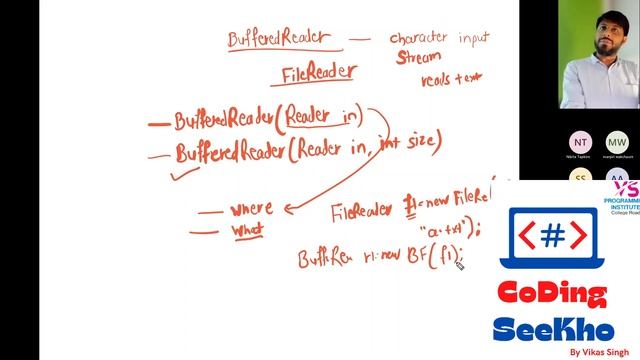 BufferedReader — character input
Stream
reads text
FileReader
— BufferedReader(Reader in)
— BufferedReader(Reader in, int size)
— where
— what
FileReader f1=new FileRe
"a.txt");
BuffRea r1=new BF(f1);
NT
MW
Nikita Tapkire
SS
AA
VS
PROGRAMMING
INSTITUTE
College Road
<#>
CoDing
SeeKho
By Vikas Singh